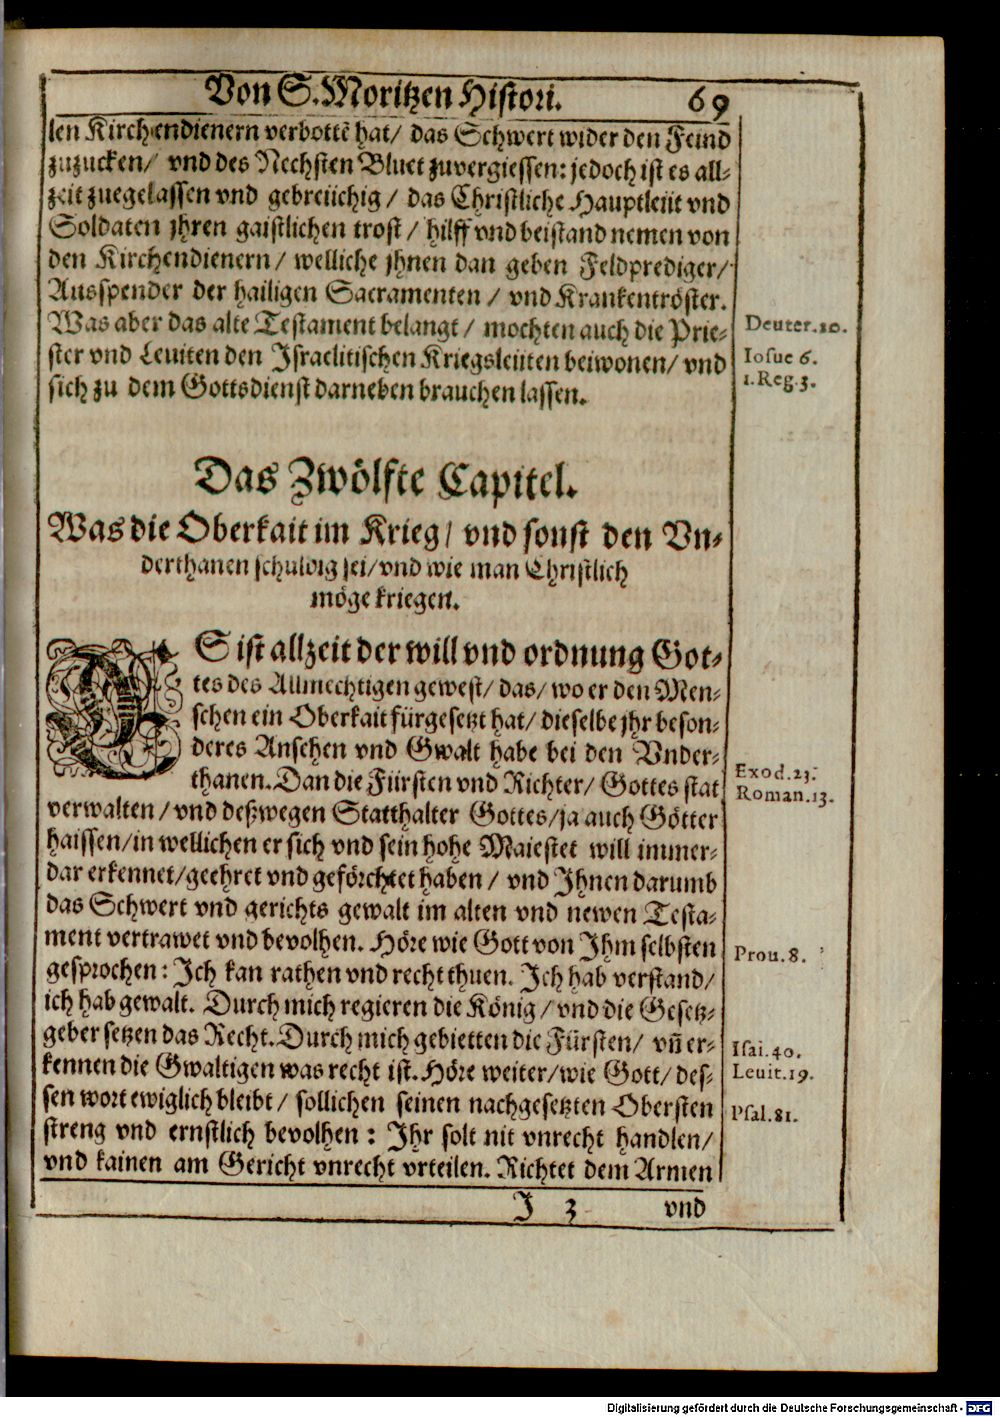 Von S. Moritzen Histori. 69
len Kirchendienern verbottẽ hat/ das Schwert wider den Feind
zuzucken/ vnd des Nechsten Bluet zuvergiessen: jedoch ist es all-
zeit zuegelassen vnd gebreüchig/ das Christliche Hauptleüt vnd
Soldaten jhren gaistlichen trost/ hilff vnd beistand nemen von
den Kirchendienern/ welliche jhnen dan geben Feldprediger/
Ausspender der hailigen Sacramenten/ vnd Krankentröster.
Was aber das alte Testament belangt/ mochten auch die Prie-
ster vnd Leuiten den Israelitischen Kriegsleüten beiwonen/ vnd
sich zu dem Gottsdienst darneben brauchen lassen.
Deuter.20.
Iosue 6.
1.Reg.3.
Das Zwölfte Capitel.
Was die Oberkait im Krieg/ vnd sonst den Vn-
derthanen schuldig sei/ vnd wie man Christlich
möge kriegen.
ES ist allzeit der will vnd ordnung Got-
tes des Allmechtigen gewest/ das/ wo er den Men-
schen ein Oberkait fürgesetzt hat/ dieselbe jhr beson-
deres Ansehen vnd Gwalt habe bei den Vnder-
thanen. Dan die Fürsten vnd Richter/ Gottes stat
verwalten/ vnd deßwegen Statthalter Gottes/ ja auch Götter
haissen/ in wellichen er sich vnd sein hohe Maiestet will immer-
dar erkennet/ geehret vnd geförchtet haben/ vnd Ihnen darumb
das Schwert vnd gerichts gewalt im alten vnd newen Testa-
ment vertrawet vnd bevolhen. Höre wie Gott von Ihm selbsten
gesprochen: Ich kan rathen vnd recht thuen. Ich hab verstand/
ich hab gewalt. Durch mich regieren die König/ vnd die Gesetz-
geber setzen das Recht. Durch mich gebietten die Fürsten/ vñ er-
kennen die Gwaltigen was recht ist. Höre weiter/ wie Gott/ des-
sen wort ewiglich bleibt/ sollichen seinen nachgesetzten Obersten
streng vnd ernstlich bevolhen: Ihr solt nit vnrecht handlen/
vnd kainen am Gericht vnrecht vrteilen. Richtet dem Armen
Exod.23.
Roman.13.
Prou.8.
Isai.40.
Leuit.19.
Psal.81.
J 3 vnd
Digitalisierung gefördert durch die Deutsche Forschungsgemeinschaft - DFG